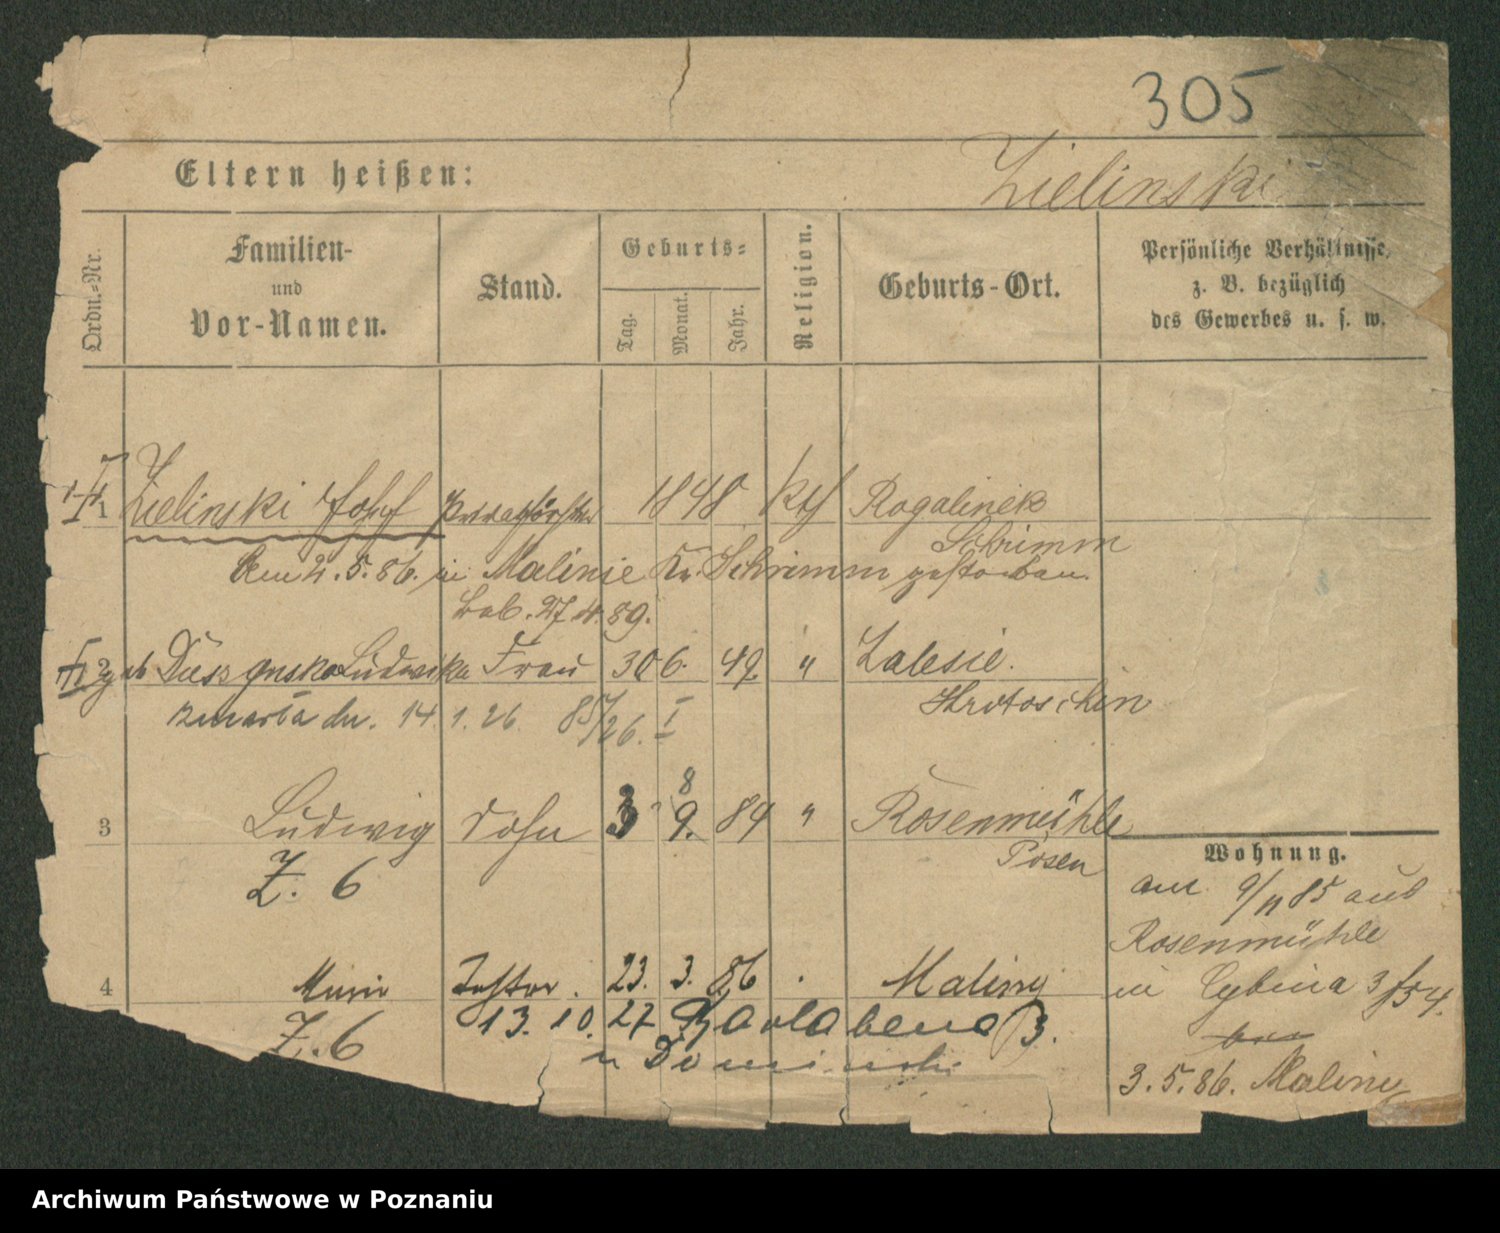 305
Eltern heißen:
Zielinski
Ordn.-Nr.
Familien- und Vor-Namen.
Stand.
Geburts-
Tag.
Monat.
Jahr.
Religion.
Geburts-Ort.
Persönliche Verhältnisse, z. B. bezüglich des Gewerbes u. s. w.
1 Zielinski Josef 1848 kth Rogalinek
Schrimm
Am 2.5.86. in Malinie Kr. Schrimm gestorben.
27.4.89.
2 Ludwika Frau 30 6. 49. " Zalesie.
Krotoschin
zmarła dn. 14.1.26. 85/26. I
3 Ludwig Sohn 3 8 9. 84 " Rosenmühle
Posen
Z. 6
4 Tochter. 23. 3. 86 Maliny
Z. 6
13. 10. 27 B.
u Dominski
Wohnung.
am 9/11 85 aus
Rosenmühle
in Cybina 3/54.
3.5.86. Maliny
Archiwum Państwowe w Poznaniu